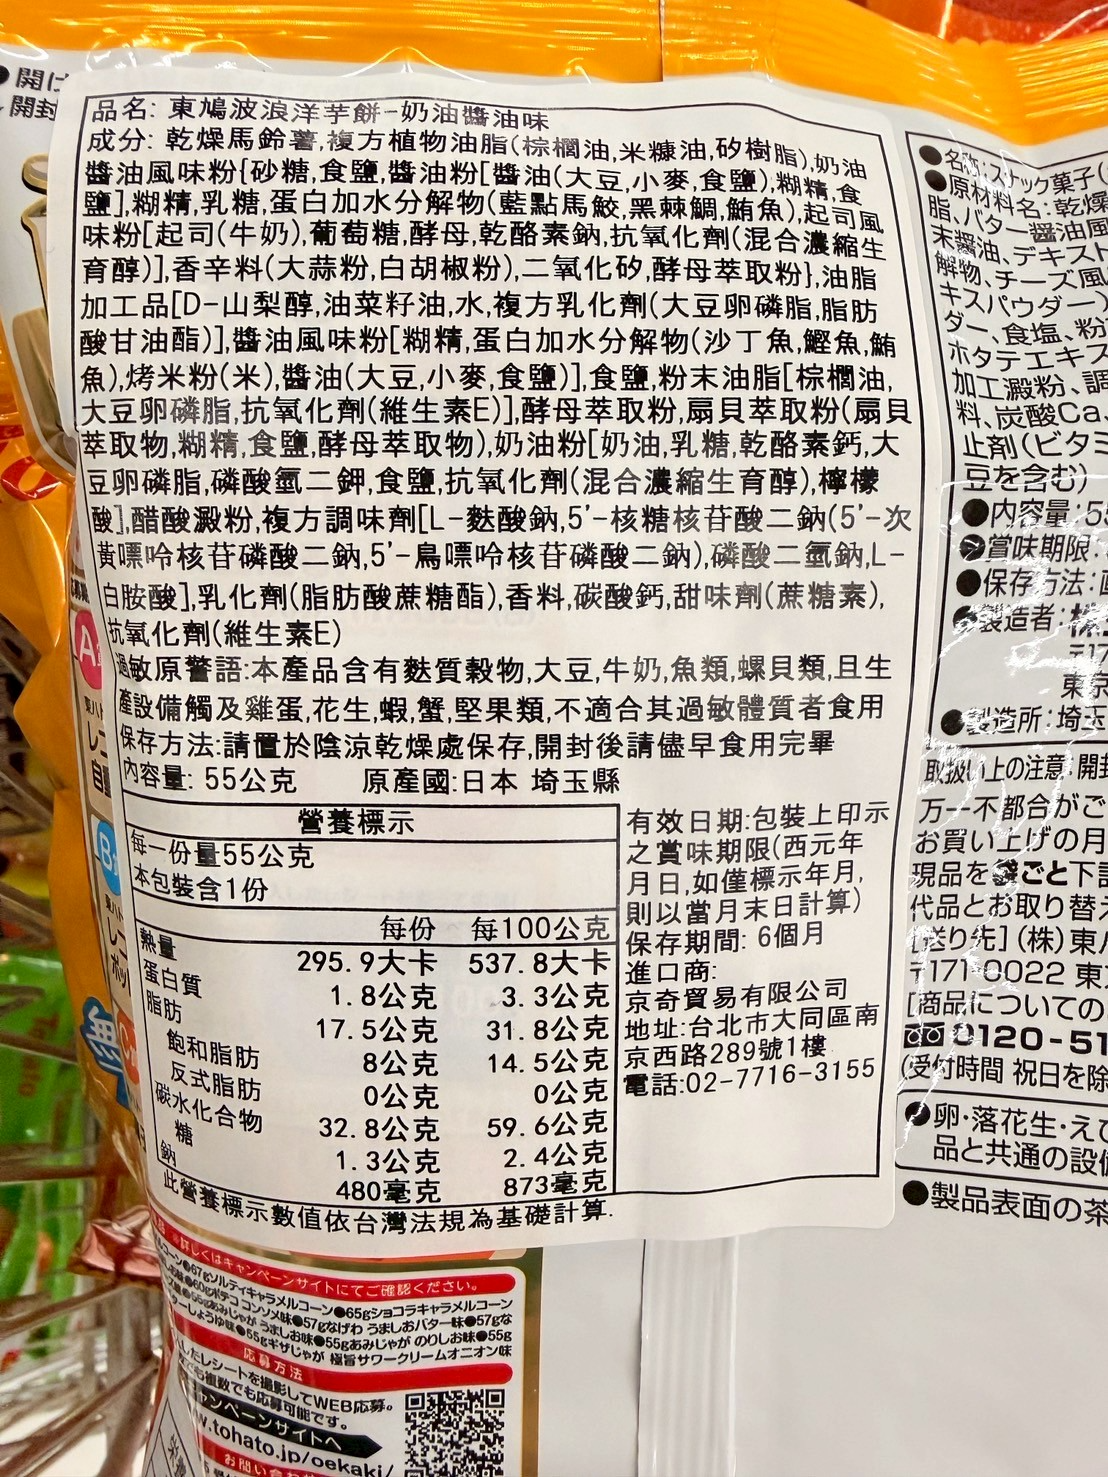 ●開け
開封
品名: 東鳩波浪洋芋餅-奶油醬油味
成分: 乾燥馬鈴薯,複方植物油脂(棕櫚油,米糠油,矽樹脂),奶油
醬油風味粉{砂糖,食鹽,醬油粉[醬油(大豆,小麥,食鹽),糊精,食
鹽],糊精,乳糖,蛋白加水分解物(藍點馬鮫,黑棘鯛,鮪魚),起司風
味粉[起司(牛奶),葡萄糖,酵母,乾酪素鈉,抗氧化劑(混合濃縮生
育醇)],香辛料(大蒜粉,白胡椒粉),二氧化矽,酵母萃取粉},油脂
加工品[D-山梨醇,油菜籽油,水,複方乳化劑(大豆卵磷脂,脂肪
酸甘油酯)],醬油風味粉[糊精,蛋白加水分解物(沙丁魚,鰹魚,鮪
魚),烤米粉(米),醬油(大豆,小麥,食鹽)],食鹽,粉末油脂[棕櫚油,
大豆卵磷脂,抗氧化劑(維生素E)],酵母萃取粉,扇貝萃取粉(扇貝
萃取物,糊精,食鹽,酵母萃取物),奶油粉[奶油,乳糖,乾酪素鈣,大
豆卵磷脂,磷酸氫二鉀,食鹽,抗氧化劑(混合濃縮生育醇),檸檬
酸],醋酸澱粉,複方調味劑[L-麩酸鈉,5'-核糖核苷酸二鈉(5'-次
黃嘌呤核苷磷酸二鈉,5'-鳥嘌呤核苷磷酸二鈉),磷酸二氫鈉,L-
白胺酸],乳化劑(脂肪酸蔗糖酯),香料,碳酸鈣,甜味劑(蔗糖素),
抗氧化劑(維生素E)
過敏原警語:本產品含有麩質穀物,大豆,牛奶,魚類,螺貝類,且生
產設備觸及雞蛋,花生,蝦,蟹,堅果類,不適合其過敏體質者食用
保存方法:請置於陰涼乾燥處保存,開封後請儘早食用完畢
內容量: 55公克 原產國:日本 埼玉縣
營養標示
每一份量55公克
本包裝含1份
每份 每100公克
熱量 295.9大卡 537.8大卡
蛋白質 1.8公克 3.3公克
脂肪 17.5公克 31.8公克
飽和脂肪 8公克 14.5公克
反式脂肪 0公克 0公克
碳水化合物 32.8公克 59.6公克
糖 1.3公克 2.4公克
鈉 480毫克 873毫克
此營養標示數值依台灣法規為基礎計算.
有效日期:包裝上印示
之賞味期限(西元年
月日,如僅標示年月,
則以當月末日計算)
保存期間: 6個月
進口商:
京奇貿易有限公司
地址:台北市大同區南
京西路289號1樓
電話:02-7716-3155
●名称:スナック菓子(
●原材料名:乾燥
脂、バター醤油風
末醤油、デキスト
解物、チーズ風
キスパウダー)
ダー、食塩、粉
ホタテエキス
加工澱粉、調
料、炭酸Ca、
止剤(ビタミ
豆を含む)
●内容量:5
●賞味期限:
●保存方法:直
●製造者:株
〒17
東京
●製造所:埼玉
取扱い上の注意:開封
万一不都合がご
お買い上げの月
現品を袋ごと下記
代品とお取り替え
[送り先](株)東ハ
〒171-0022 東
[商品についての
0120-51
(受付時間 祝日を除
●卵・落花生・えび
品と共通の設備
●製品表面の茶
詳しくはキャンペーンサイトにてご確認ください。
コーン●67gソルティキャラメルコーン●65gショコラキャラメルコーン
●60gポテコ コンソメ味●57gなげわ うましおバター味●57gな
●55gあみじゃが うましお味●55gあみじゃが のりしお味●55g
ターしょうゆ味●55gギザじゃが 極旨サワークリームオニオン味
応募方法
したレシートを撮影してWEB応募。
でも複数でも応募可能です。
ャンペーンサイトへ
w.tohato.jp/oekaki/